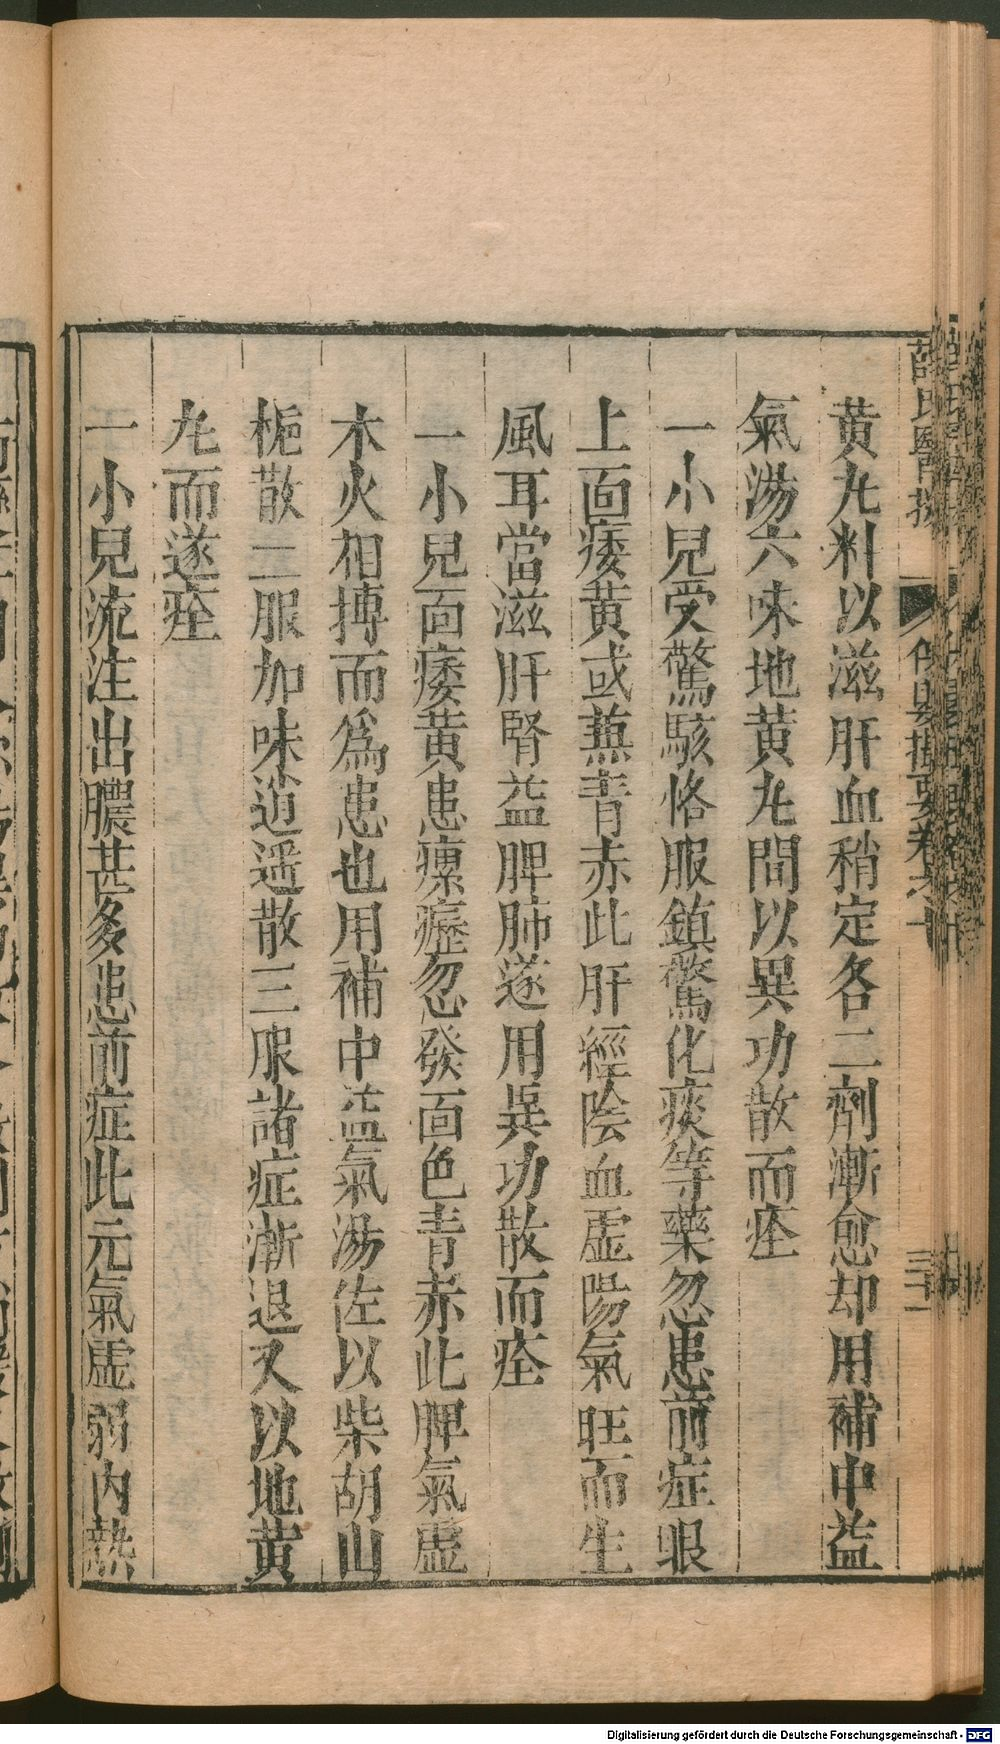 薛氏醫按 保嬰撮要卷之十 三十一
黄九料以滋肝血稍定各二劑漸愈却用補中益
氣湯六味地黄九間以異功散而痊
一小兒受驚駭恪服鎮驚化痰等藥忽患前症眼
上面痿黄或蕪青赤此肝經陰血虛陽氣旺而生
風耳當滋肝腎益脾肺遂用異功散而痊
一小兒面痿黄患瘰癧忽發面色青赤此脾氣虛
木火相搏而爲患也用補中益氣湯佐以柴胡山
梔散二服加味逍遥散三服諸症漸退又以地黄
九而遂痊
一小兒流注出膿甚多患前症此元氣虛弱内熱
Digitalisierung gefördert durch die Deutsche Forschungsgemeinschaft - DFG